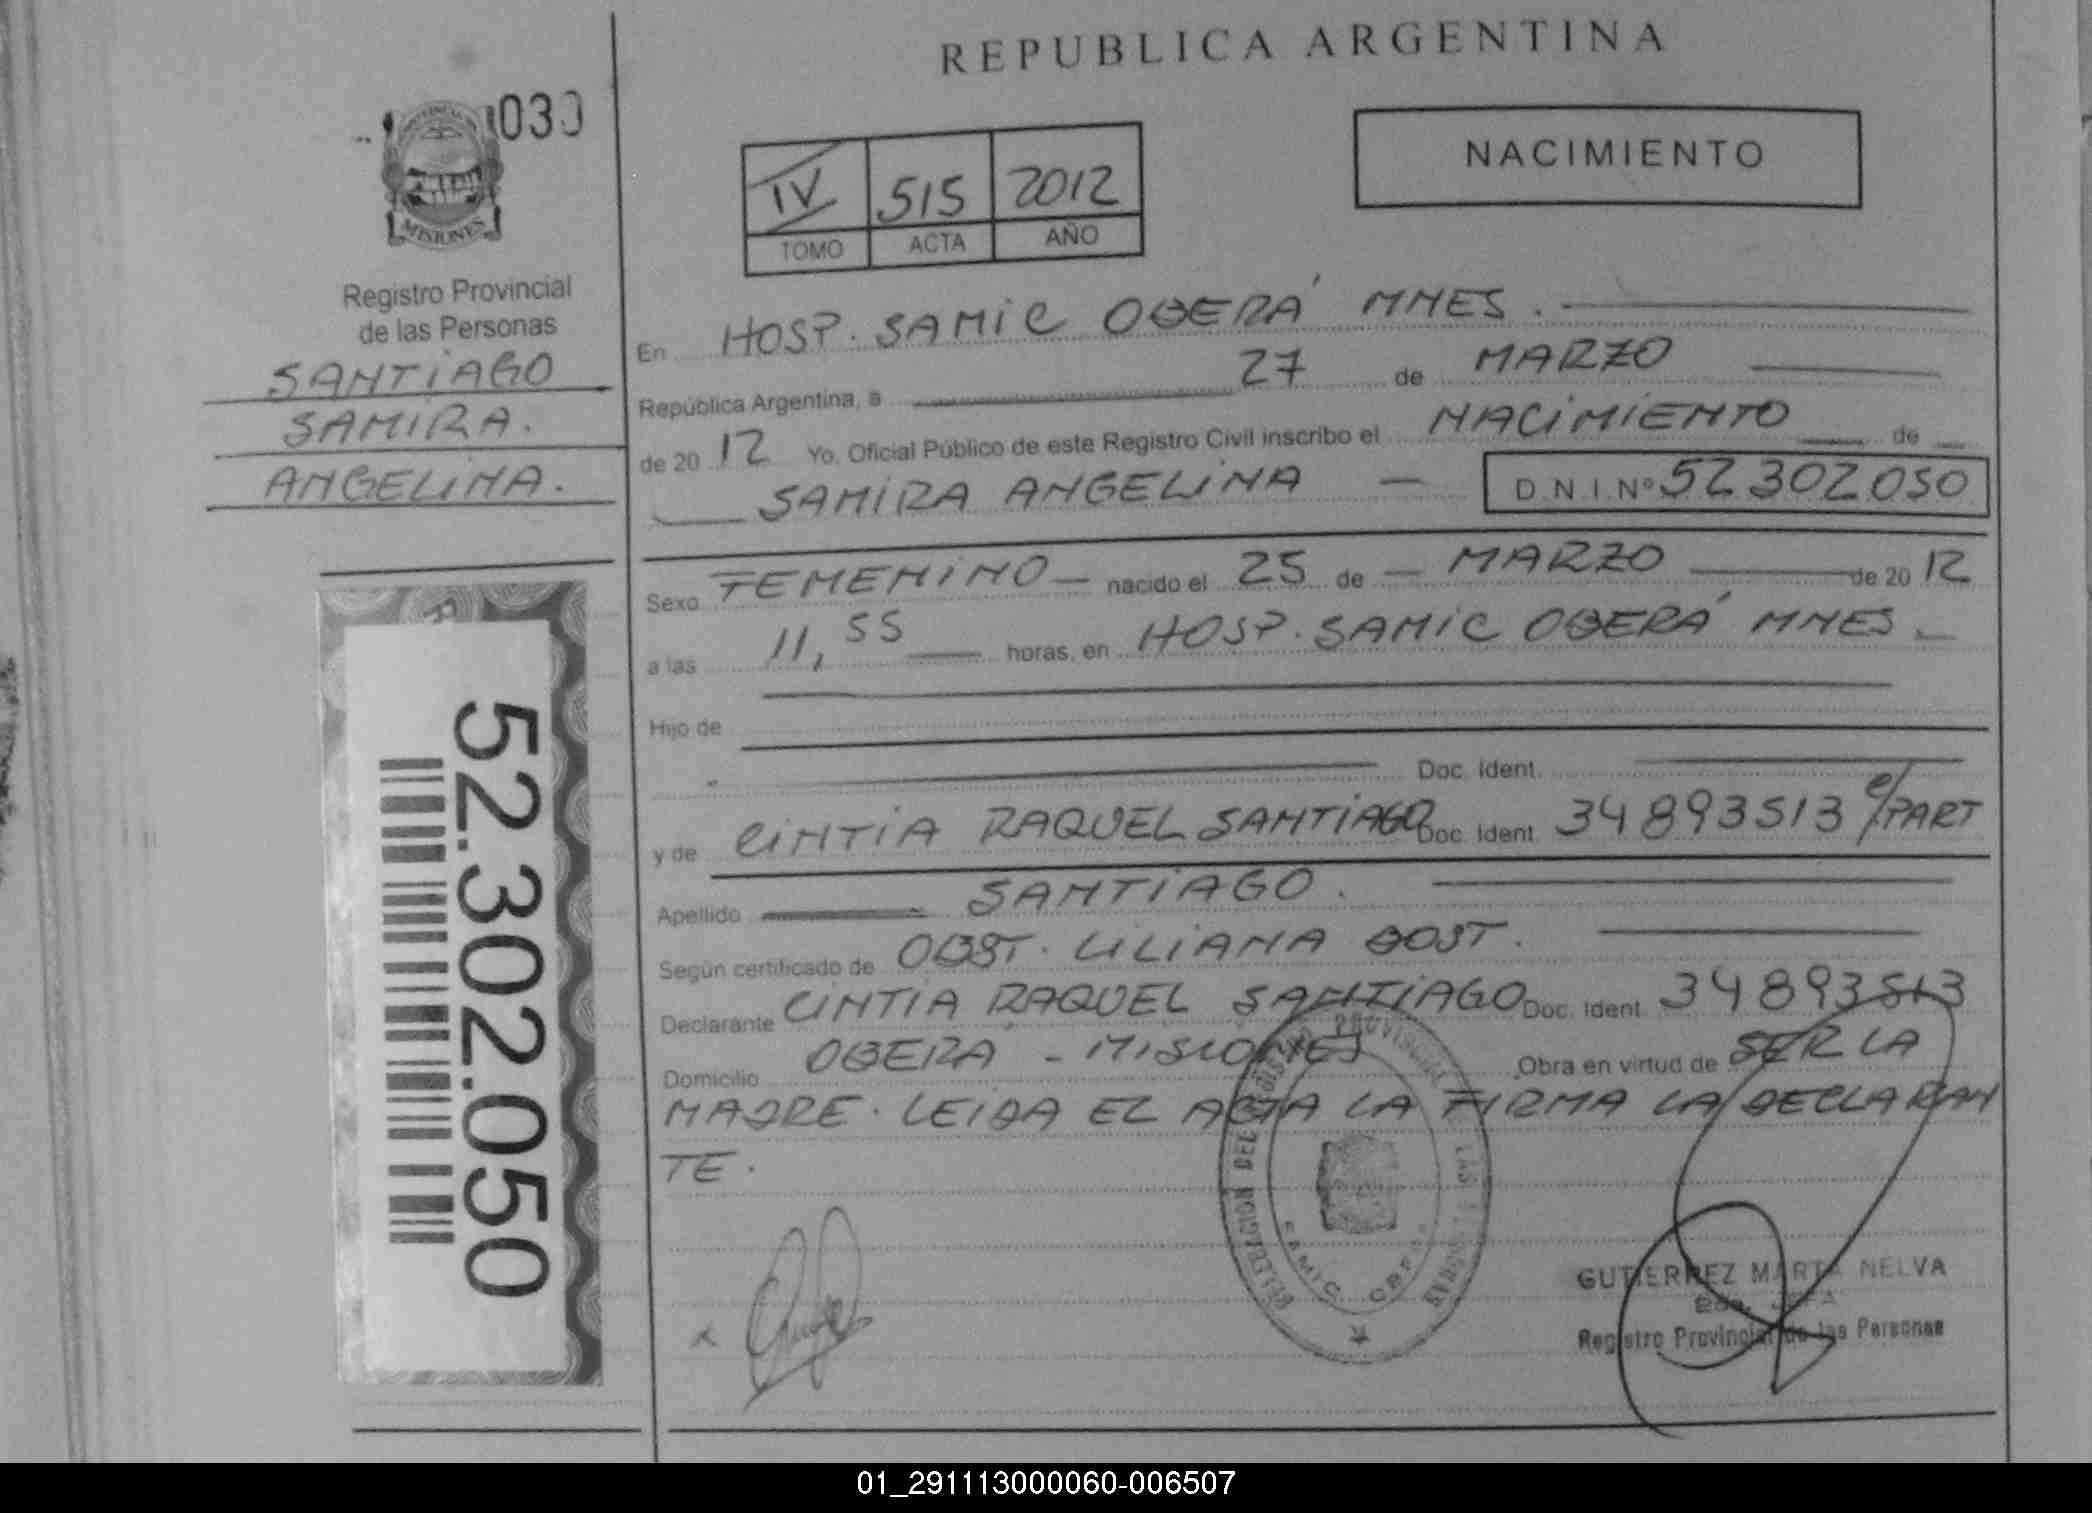 REPUBLICA ARGENTINA
030
MISIONES
Registro Provincial
de las Personas
SANTIAGO
SAMIRA.
ANGELINA.
52.302.050
NACIMIENTO
IV 515 2012
TOMO ACTA AÑO
En HOSP. SAMIC OBERÁ MNES.
República Argentina, a 27 de MARZO
de 2012 Yo, Oficial Público de este Registro Civil inscribo el NACIMIENTO de
SAMIRA ANGELINA — D.N.I. Nº 52302050
Sexo FEMENINO — nacido el 25 de — MARZO de 2012
a las 11,55 horas, en HOSP. SAMIC OBERÁ MNES.
Hijo de
Doc. Ident.
y de CINTIA RAQUEL SANTIAGO Doc. Ident. 34893513 C/PART
Apellido SANTIAGO.
Según certificado de OBST. LILIANA BOST.
Declarante CINTIA RAQUEL SANTIAGO Doc. Ident. 34893513
Domicilio OBERA - MISIONES Obra en virtud de SER LA
MADRE. LEIDA EL ACTA LA FIRMA LA DECLARAN
TE.
DELEGACION DEL REGISTRO PROVINCIAL DE LAS PERSONAS
SAMIC
GUTIERREZ MARTA NELVA
Registro Provincial de las Personas
01_291113000060-006507